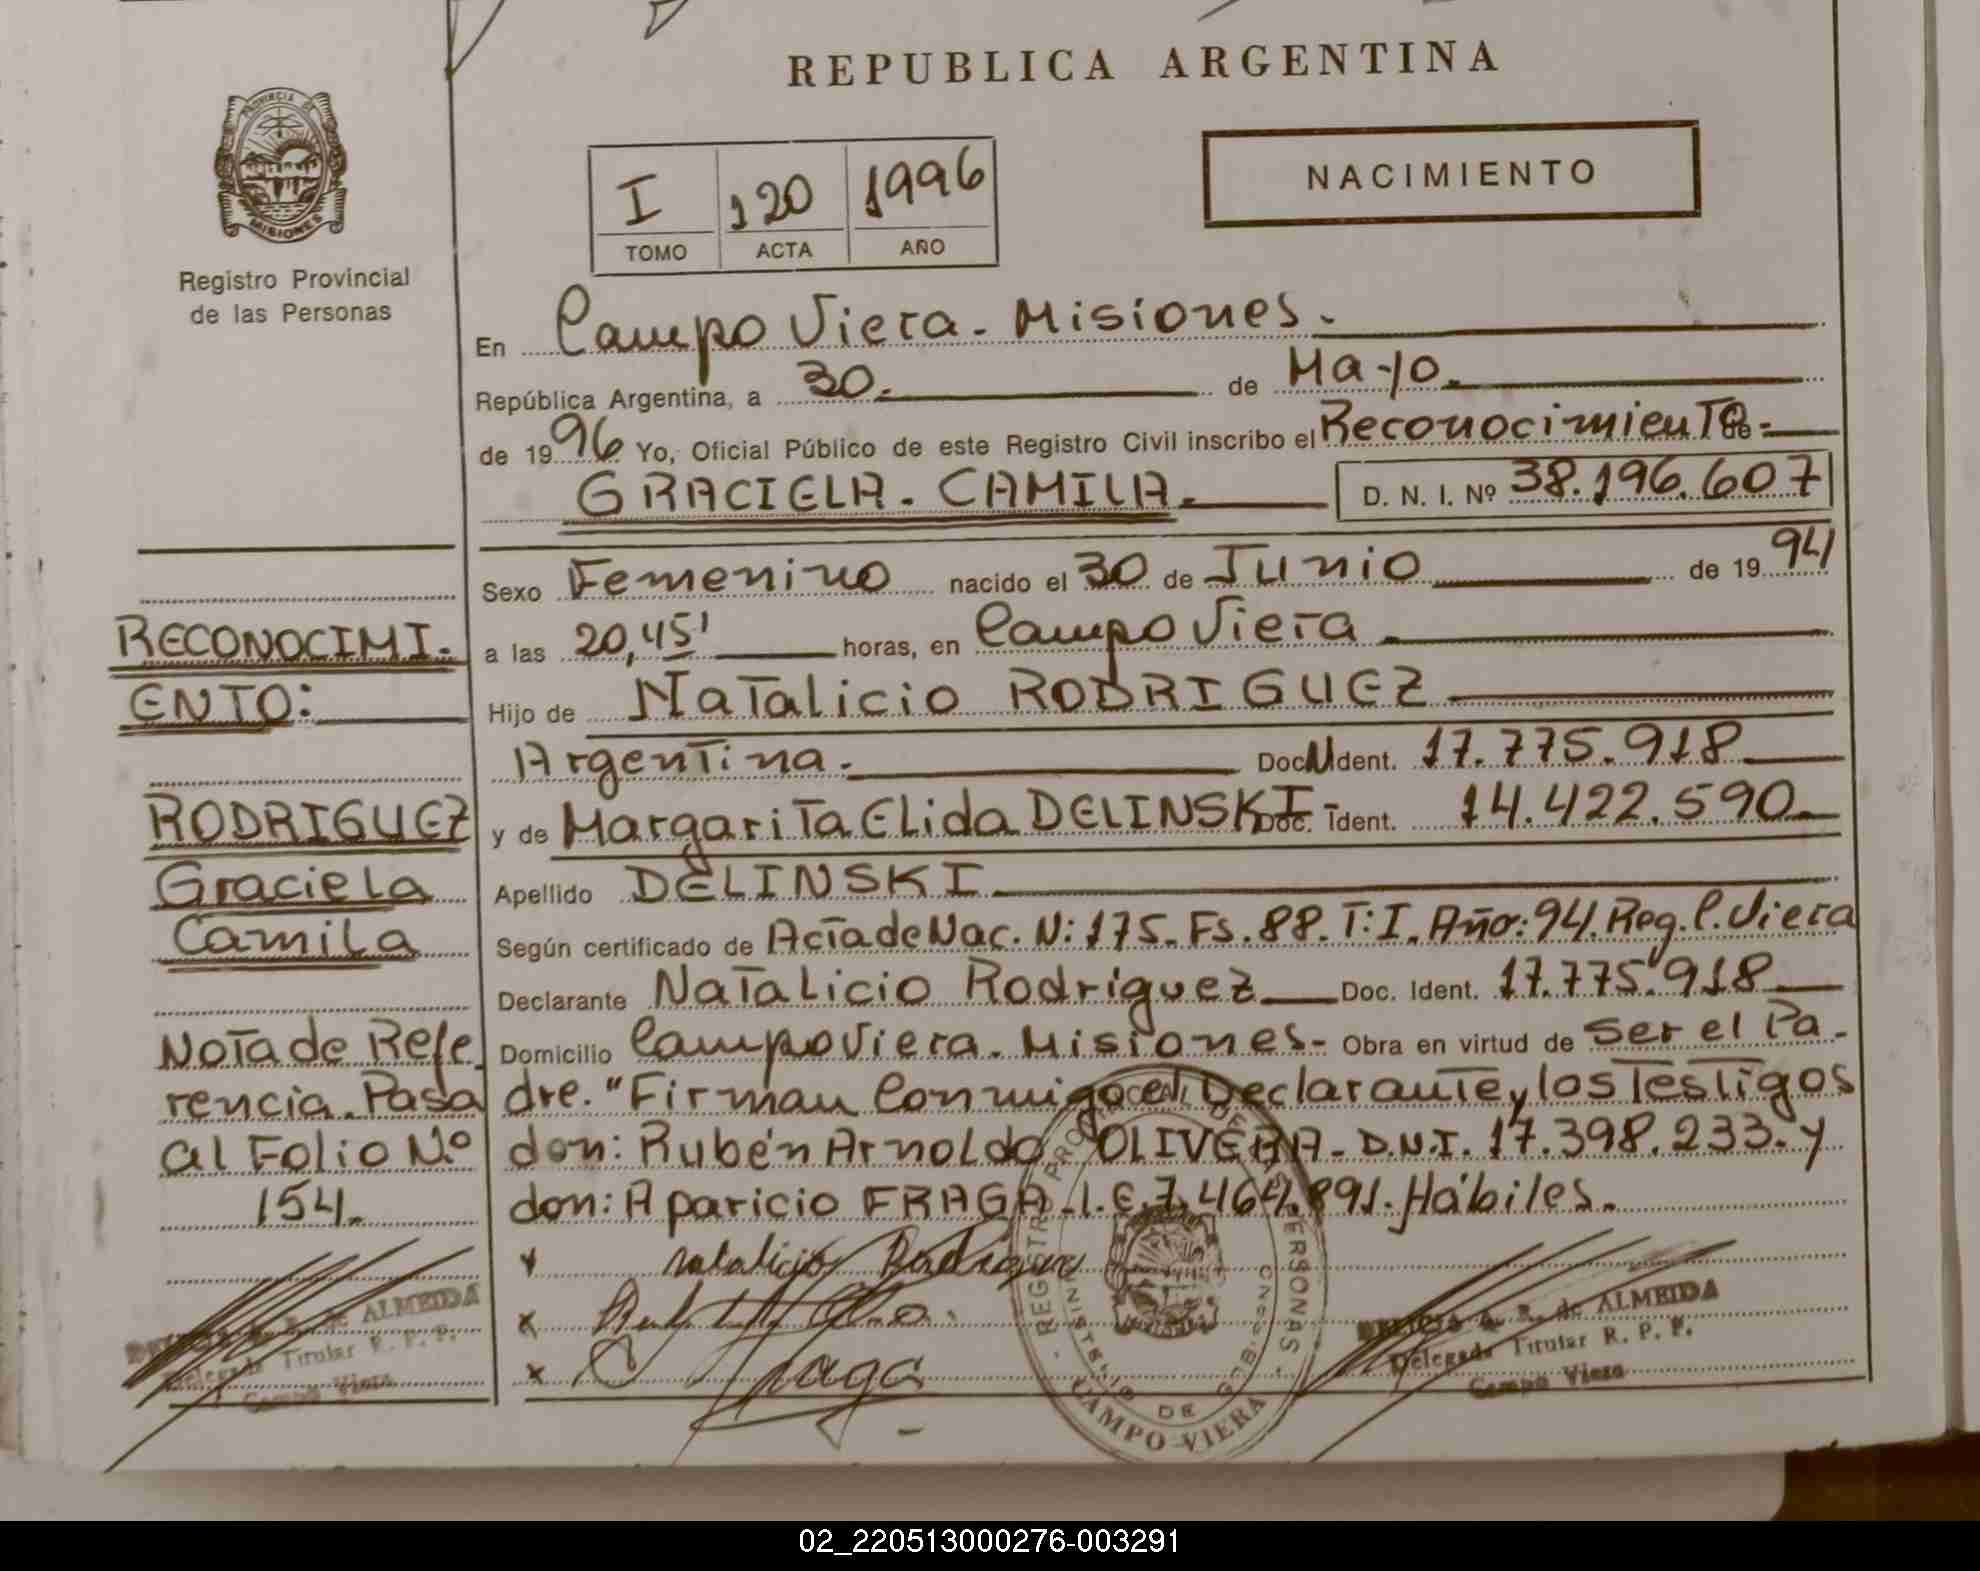 REPUBLICA ARGENTINA
PROVINCIA DE
MISIONES
Registro Provincial
de las Personas
I 120 1996
TOMO ACTA AÑO
NACIMIENTO
En Campo Viera - Misiones.
República Argentina, a 30. de Mayo.
de 1996 Yo, Oficial Público de este Registro Civil inscribo el Reconocimiento de
GRACIELA - CAMILA. D. N. I. Nº 38.196.607
Sexo Femenino nacido el 30 de Junio de 1994
a las 20,45' horas, en Campo Viera
Hijo de Natalicio RODRIGUEZ
Argentina. Doc. Ident. 17.775.918
y de Margarita Elida DELINSKI - Doc. Ident. 14.422.590
Apellido DELINSKI
Según certificado de Acta de Nac. N: 175. Fs. 88. T: I. Año: 94. Reg. C. Viera
Declarante Natalicio Rodríguez Doc. Ident. 17.775.918
Domicilio Campo Viera. Misiones - Obra en virtud de Ser el Pa-
dre. "Firman Conmigo el Declarante y los Testigos
don: Rubén Arnoldo OLIVERA - D.N.I. 17.398.233 - y
don: Aparicio FRAGA - L.E. 7.464.891. Hábiles.
x Natalicio Rodriguez
x
x Fraga
RECONOCIMI-
ENTO:
RODRIGUEZ
Graciela
Camila
Nota de Refe
rencia. Pasa
al Folio Nº
154.
A. R. de ALMEIDA
Delegada Titular R. P. P.
Campo Viera
REGISTRO PROVINCIAL DE PERSONAS
MINISTERIO DE GOBIERNO
CAMPO VIERA
A. R. de ALMEIDA
Delegada Titular R. P. P.
Campo Viera
02_220513000276-003291